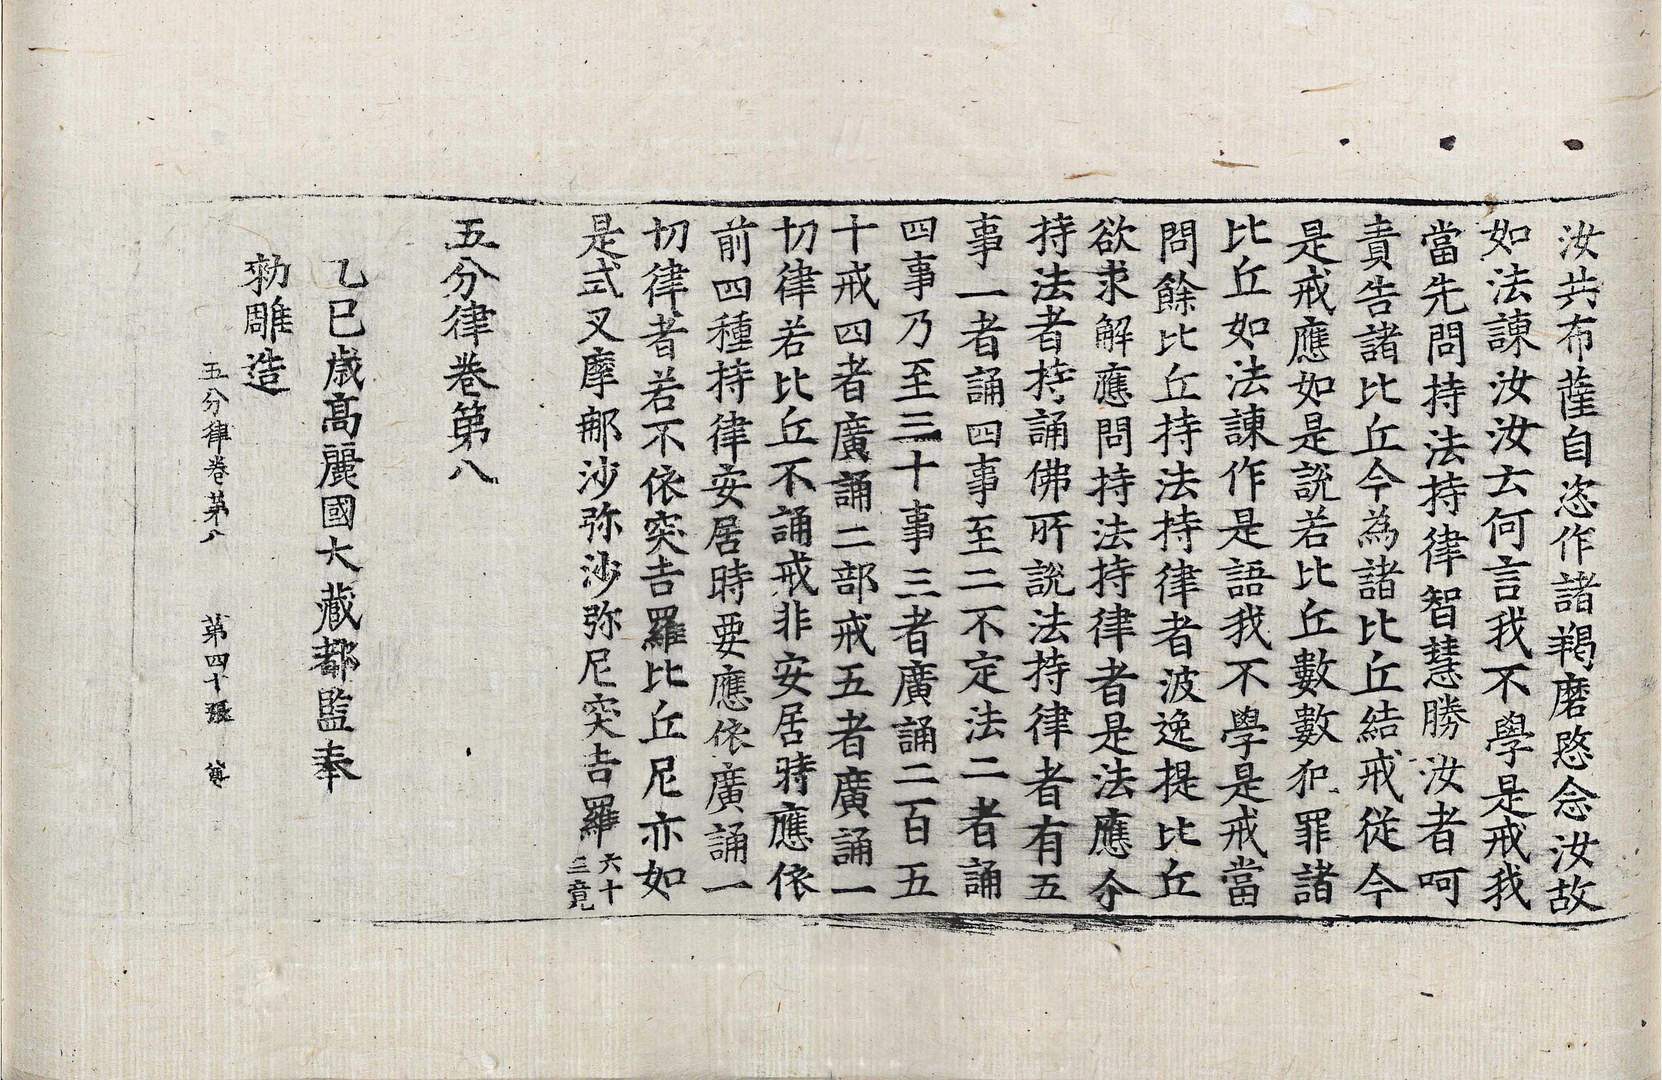 汝共布薩自恣作諸羯磨愍念汝故
如法諫汝汝云何言我不學是戒我
當先問持法持律智慧勝汝者呵
責告諸比丘今為諸比丘結戒從今
是戒應如是說若比丘數數犯罪諸
比丘如法諫作是語我不學是戒當
問餘比丘持法持律者波逸提比丘
欲求解應問持法持律者是法應尒
持法者持誦佛所說法持律者有五
事一者誦四事至二不定法二者誦
四事乃至三十事三者廣誦二百五
十戒四者廣誦二部戒五者廣誦一
切律若比丘不誦戒非安居時應依
前四種持律安居時要應依廣誦一
切律者若不依突吉羅比丘尼亦如
是式叉摩那沙弥沙弥尼突吉羅六十三竟
五分律卷第八
乙巳歲高麗國大藏都監奉
勑雕造
五分律卷第八 第四十張